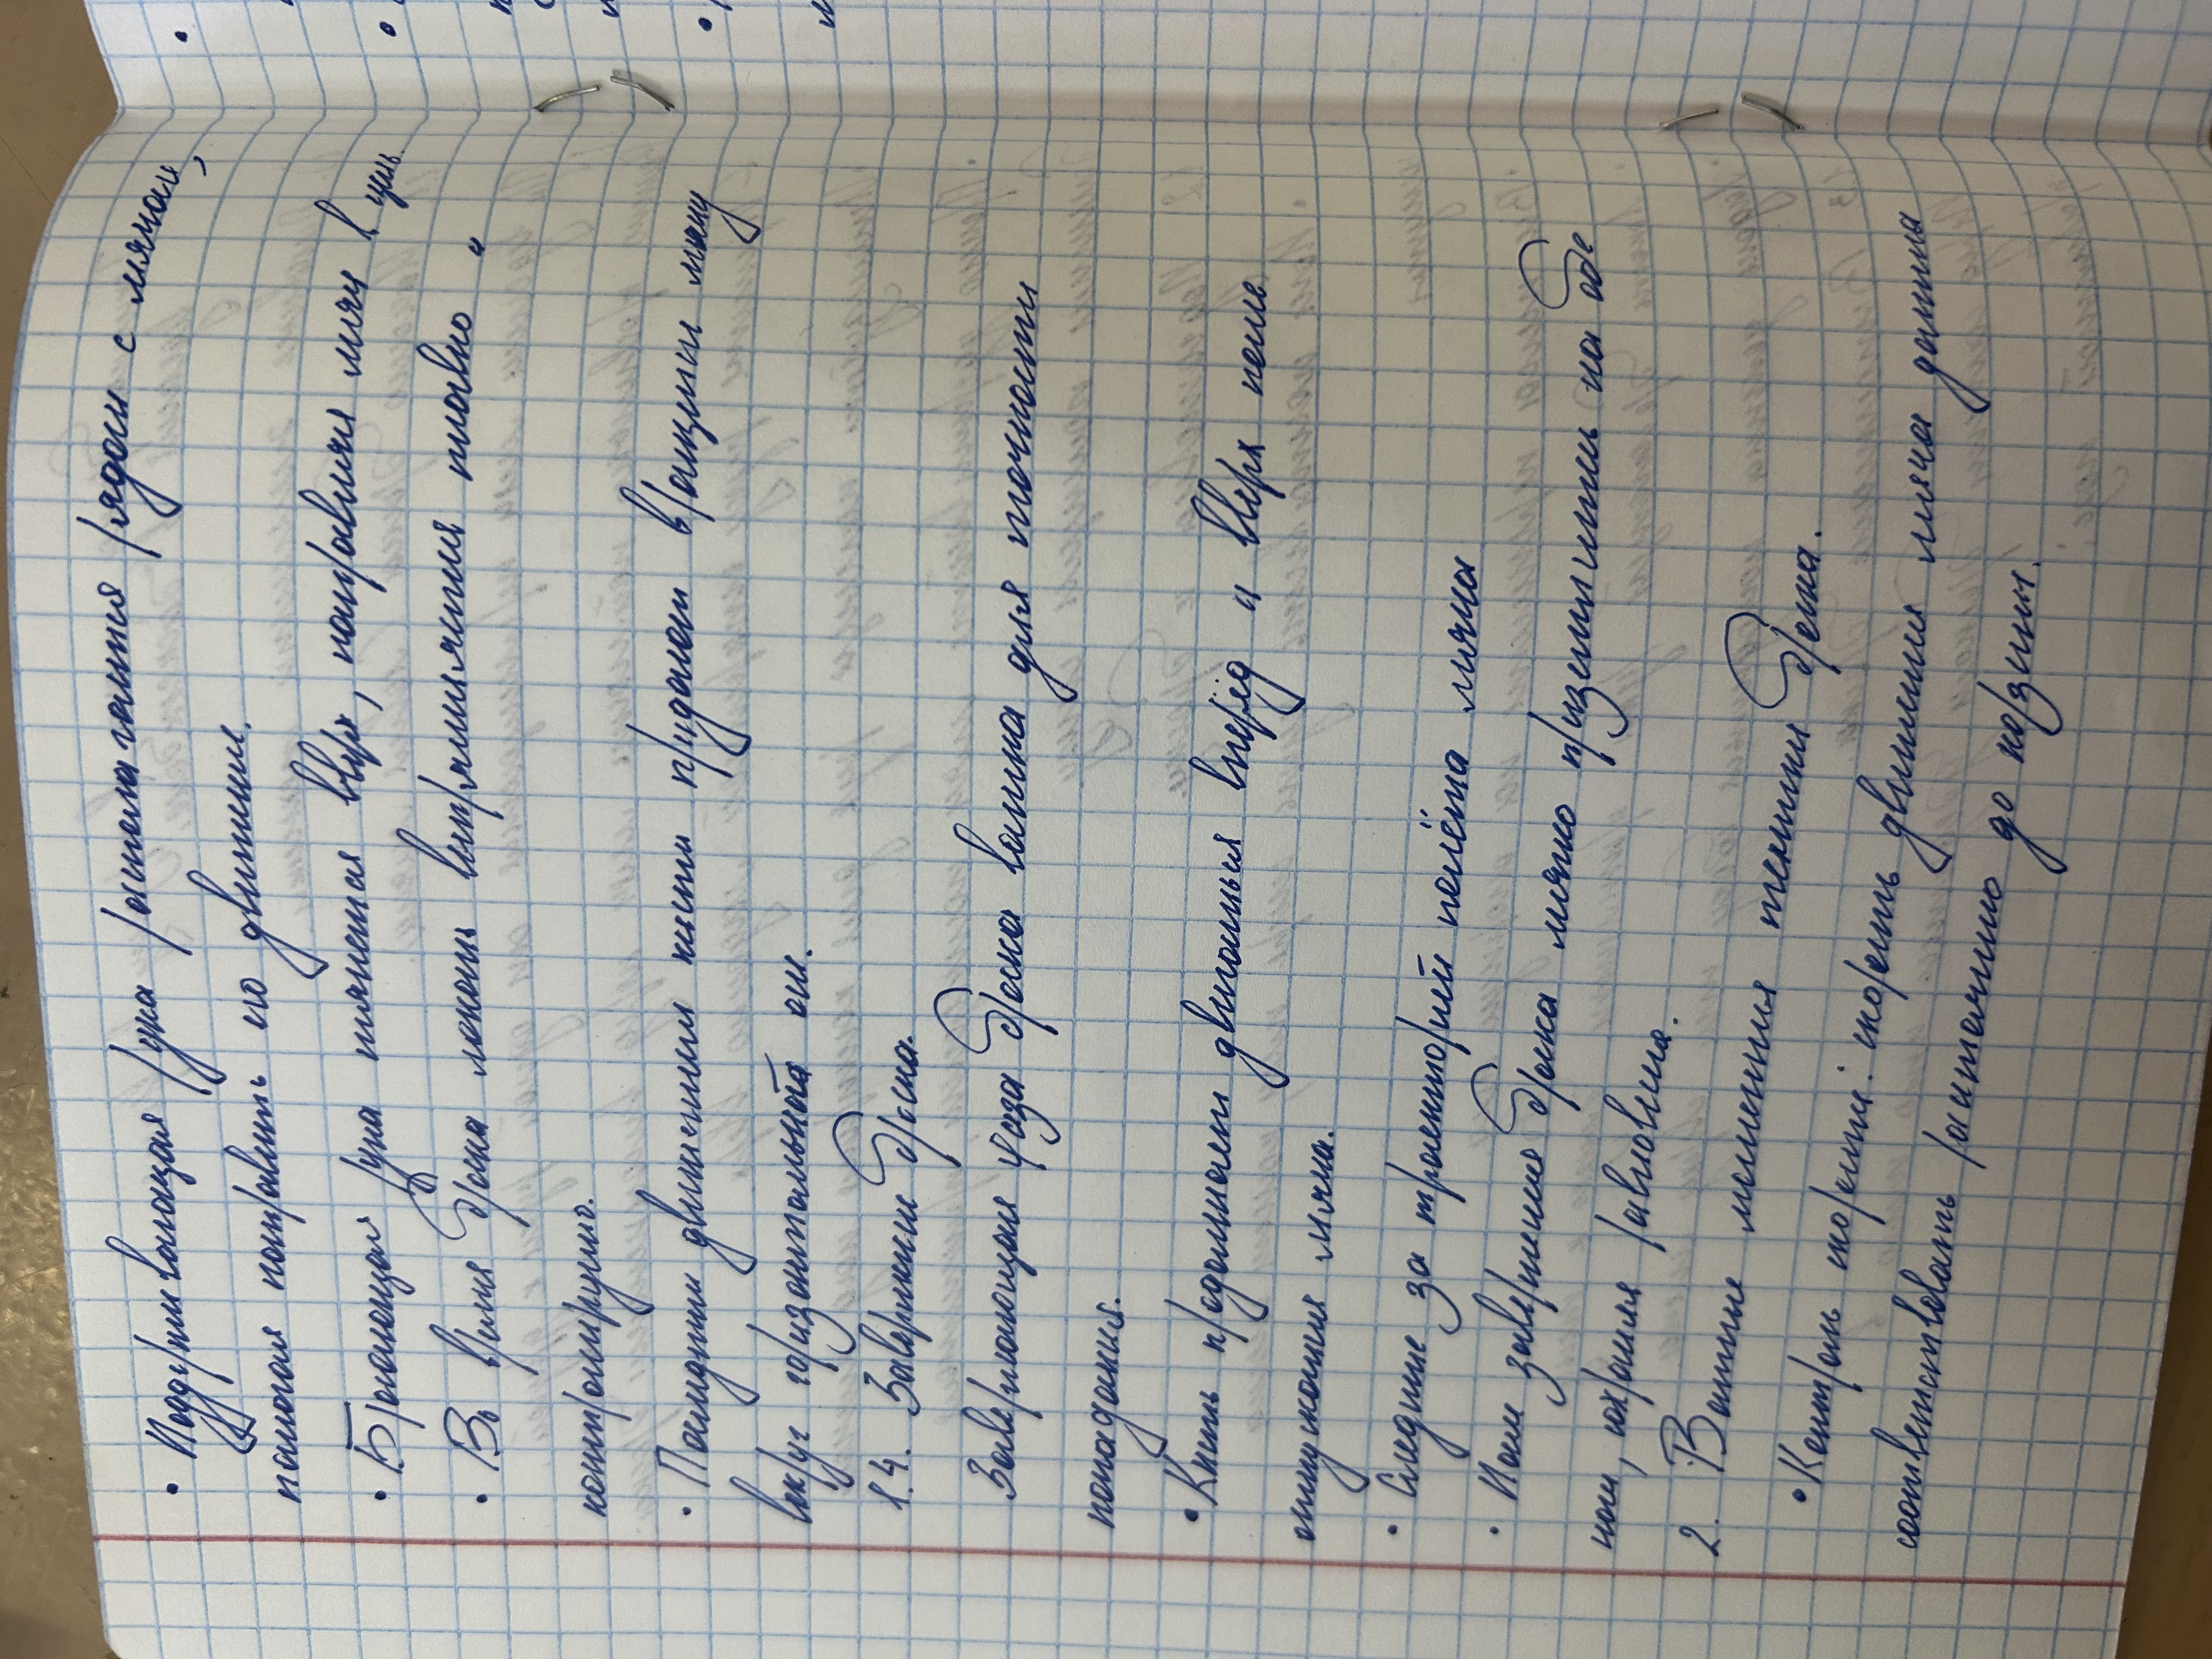 • Поддерживающая рука располагается рядом с мячом,
помогая направить его движение.
• Бросающая рука тянется вверх, направляя мяч в цель.
• Во время броска локоть выпрямляется плавно и
контролируемо.
• Последним движением кисти придаем вращении мячу
вокруг горизонтальной оси.
1.4. Завершении броска.
Завершающая фаза броска важна для точности
попадания.
• Кисть продолжает двигаться вперёд и вверх после
отпускания мяча.
• Следите за траекторией полёта мяча
• После завершение броска мягко приземлитесь на обе
ноги, сохраняя равновесие.
2. Важные техники броска.
• Контроль скорости: скорость движения мяча должна
соответствовать расстоянию до корзины.